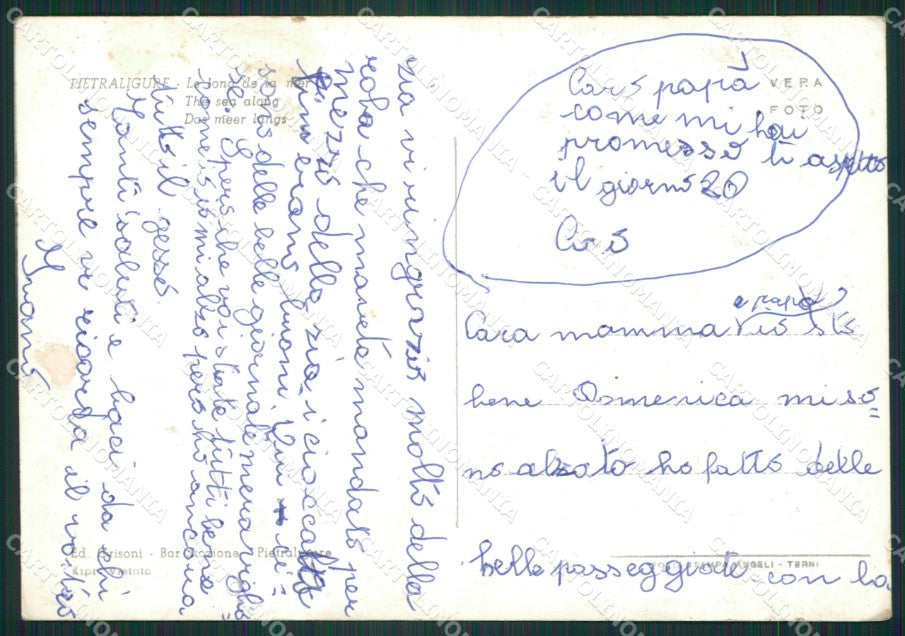 PIETRALIGURE - Le long de la mer
The sea along
Das meer langs
VERA
FOTO
Caro papà
come mi hai
promesso ti aspetto
il giorno 20
Cara mamma e papà Io sto
bene Domenica mi so=
no alzato ho fatto delle
belle passeggiate con la
zia vi ringrazio molto della
roba che mavete mandato per
mezzo dello zio i cioccolato
erano buoni Qui ci
sono delle belle giornate meravigliose
Spero che voi state tutti bene
come io mi alzo però ho ancora
tutto il gesso
Tanti saluti e baci da chi
sempre vi ricorda il vostro
Ivano
Ed. Frisoni - Bar Stazione - Pietraligure
Ripr. Vietata
STAMPA ANGELI - TERNI
CARTOLINOMANIA